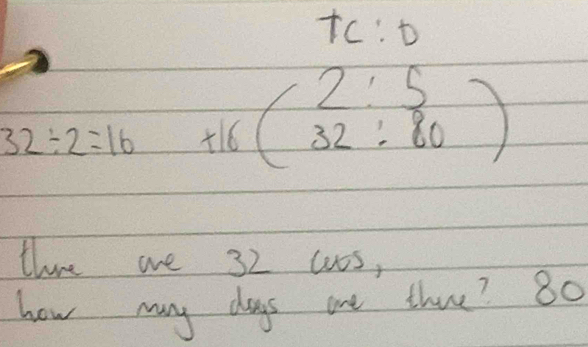 C : D
2 : 5
32÷2=16 +16 32 : 80
there are 32 cats,
how many dogs are there? 80